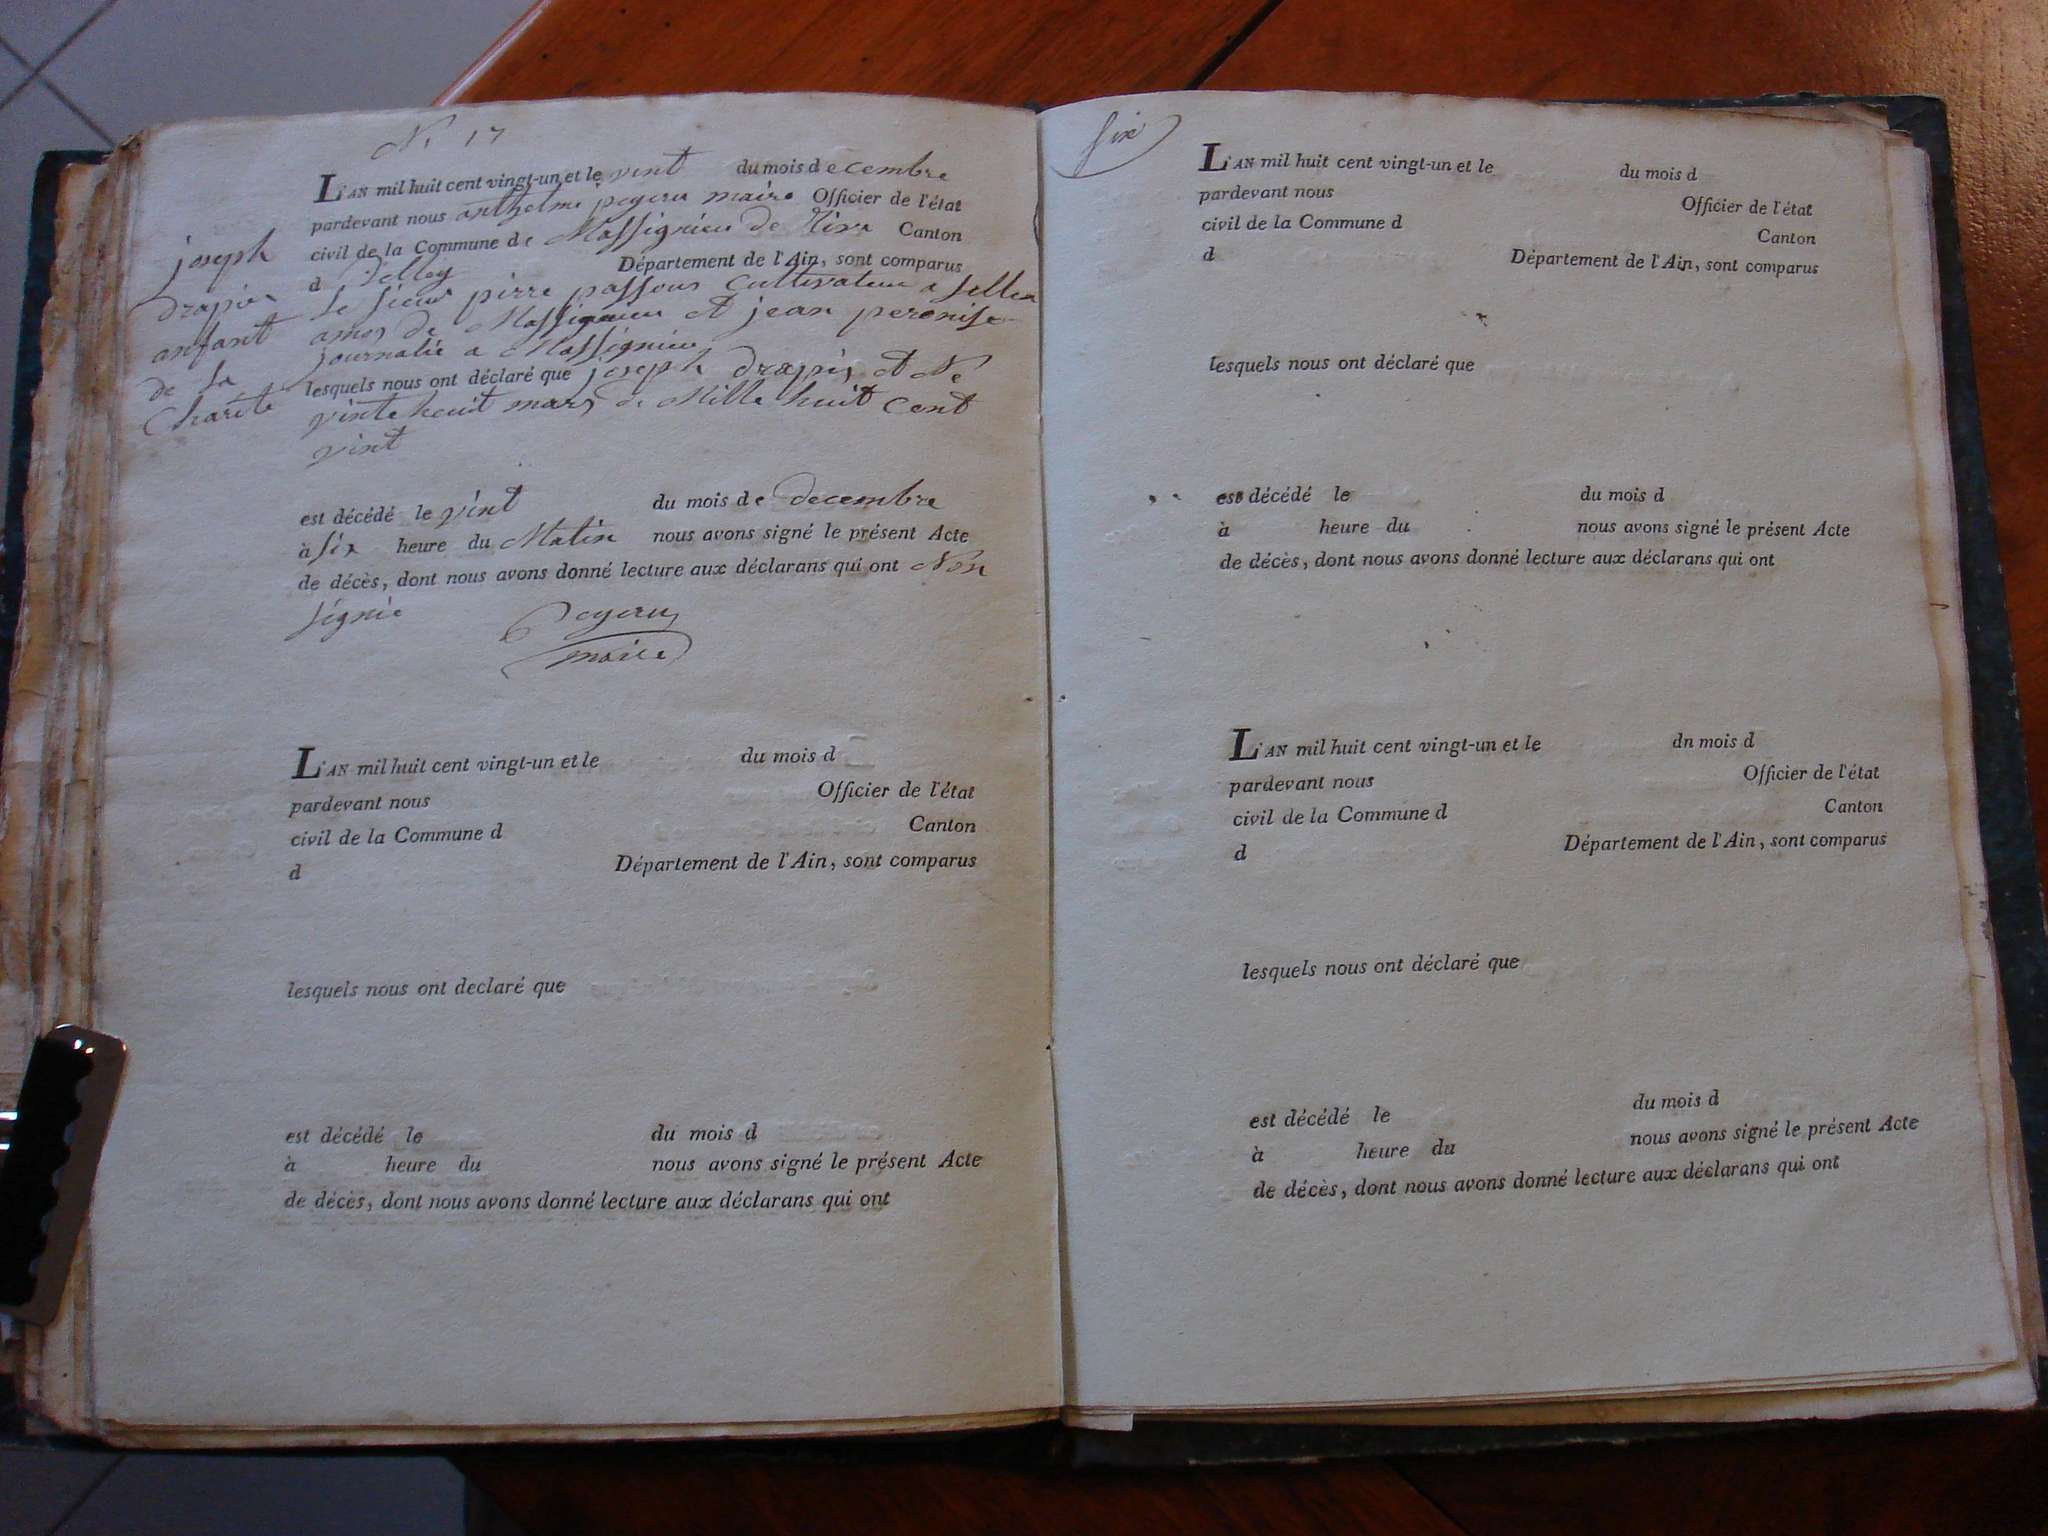 N. 17
L'AN mil huit cent vingt-un et le vint du mois decembre
pardevant nous anthelme pegeru maire Officier de l'état
civil de la Commune de Massignieu de Rive Canton
d Belley Département de l'Ain, sont comparus
le sieur pirre passous Cultivateur a
de Massignieu et jean
journalie a Massignieu
lesquels nous ont déclaré que joseph drapier et Né
vinte heuit mars de Mille huit cent
vint
joseph
drapier
anfant
de la
Charité
est décédé le vint du mois de decembre
à six heure du Matin nous avons signé le présent Acte
de décès, dont nous avons donné lecture aux déclarans qui ont Non
signié
Pegeru
maire
L'AN mil huit cent vingt-un et le du mois d
pardevant nous Officier de l'état
civil de la Commune d Canton
d Département de l'Ain, sont comparus
lesquels nous ont declaré que
est décédé le du mois d
à heure du nous avons signé le présent Acte
de décès, dont nous avons donné lecture aux déclarans qui ont
six
L'AN mil huit cent vingt-un et le du mois d
pardevant nous Officier de l'état
civil de la Commune d Canton
d Département de l'Ain, sont comparus
lesquels nous ont déclaré que
est décédé le du mois d
à heure du nous avons signé le présent Acte
de décès, dont nous avons donné lecture aux déclarans qui ont
L'AN mil huit cent vingt-un et le dn mois d
pardevant nous Officier de l'état
civil de la Commune d Canton
d Département de l'Ain, sont comparus
lesquels nous ont déclaré que
est décédé le du mois d
à heure du nous avons signé le présent Acte
de décès, dont nous avons donné lecture aux déclarans qui ont